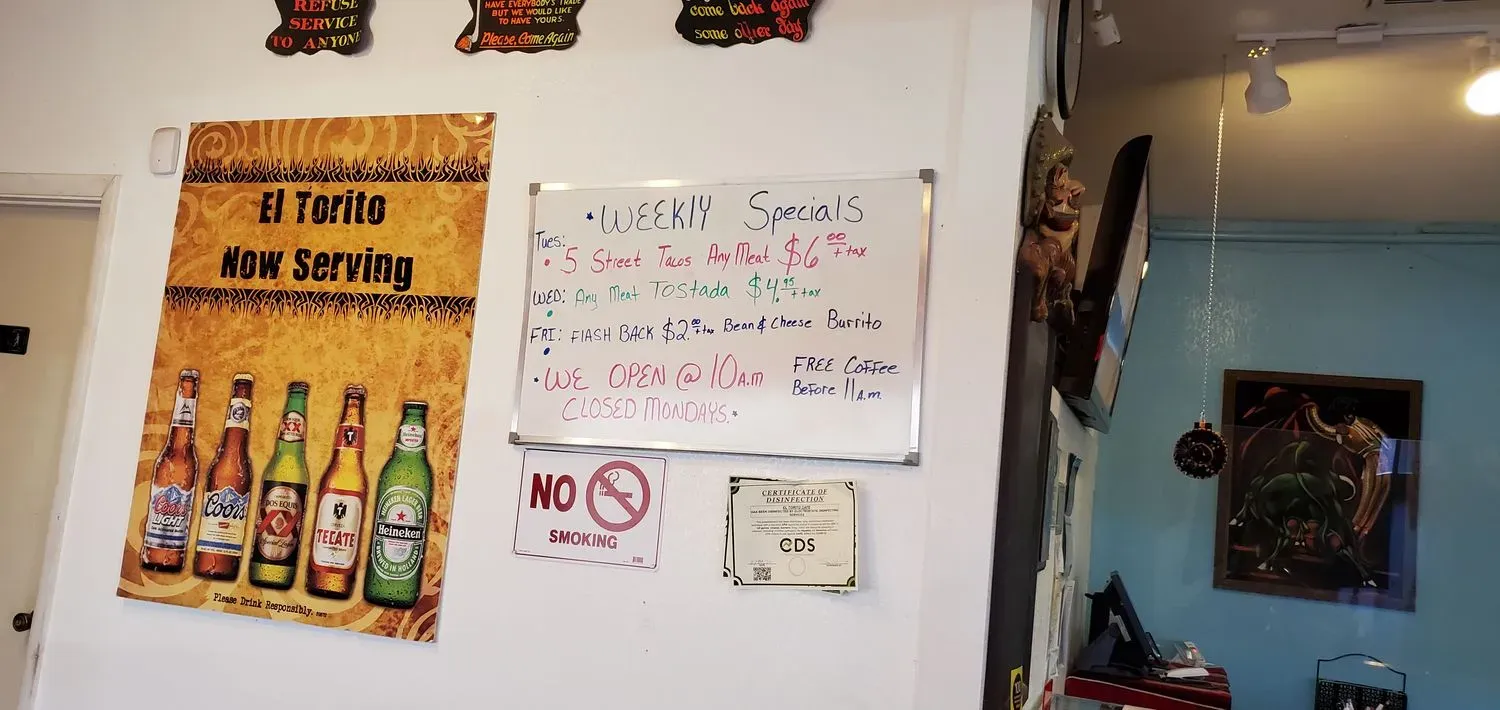 REFUSE
SERVICE
TO ANYONE
HAVE EVERYBODY'S TRADE
BUT WE WOULD LIKE
TO HAVE YOURS.
Please, Come Again
come back again
some other day
El Torito
Now Serving
Coors
LIGHT
Coors
XX
DOS EQUIS
XX
TECATE
HEINEKEN LAGER BEER
Heineken
BREWED IN HOLLAND
Please Drink Responsibly.
WEEKLY Specials
Tues:
5 Street Tacos Any Meat $6.00 + tax
WED: Any Meat TOStada $4.95 + tax
FRI: FlASH BACK $2.00 + tax Bean & Cheese Burrito
WE OPEN @ 10 A.M
CLOSED MONDAYS.
FREE Coffee
Before 11 A.M.
NO
SMOKING
CERTIFICATE OF
DISINFECTION
EL TORITO CAFE
CDS